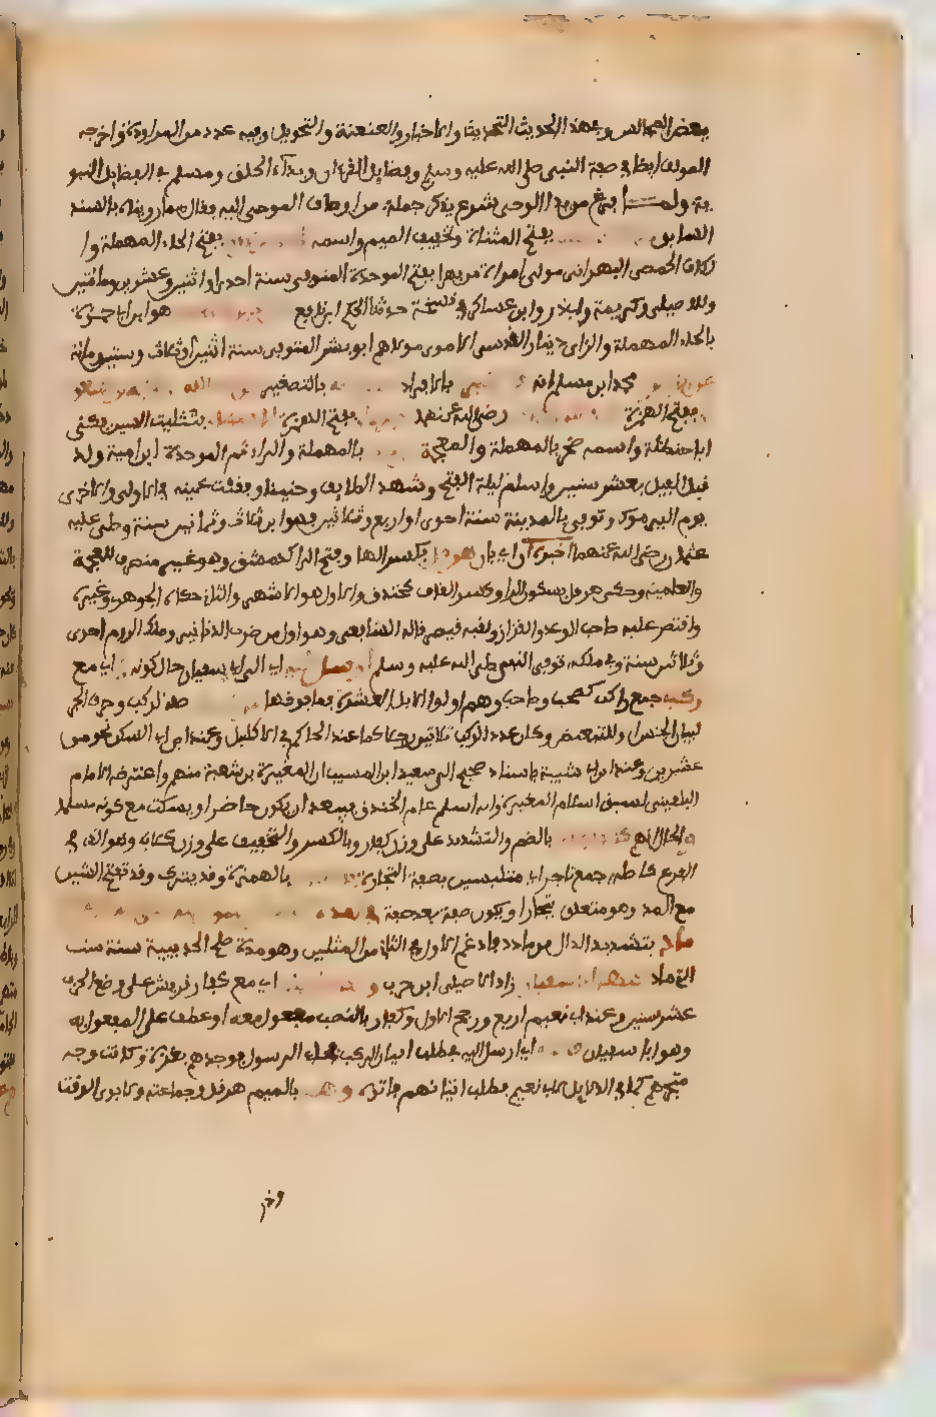 بعض المجالس وفي هذا الحديث التحديث والاخبار والعنعنة والتحويل وفيه عدد من المراوزة واخرجه
المولف ايضا في صفة النبي صلى الله عليه وسلم وفضايل القرءان وبدء الخلق ومسلم في الفضايل النبو
ية ولمـــا فرغ من بدء الوحي شرع يذكر جملة من اوصاف الموحى اليه فقال مما رويناه بالسند
السابق بفتح المثناة وتخفيف الميم واسمه بفتح الحاء المهملة وا
لكاف الحمصي البهراني مولى امراة من بهرا بفتح الموحدة المتوفى سنة احدى او اثنين وعشرين ومائتين
وللاصيلي وكريمة وابي ذر وابن عساكر في نسخة حدثنا الحكم ابن نافع هو ابن ابي حمزة
بالحاء المهملة والزاى دينار القرشي الاموي مولاهم ابو بشر المتوفى سنة اثنين او ثلاث وستين ومائة
محمد ابن مسلم انه بالافراد بالتصغير
بفتح الهمزة رضي الله عنهما بفتح الهمزة بتثليث السين يكنى
ابا حنظلة واسمه صخر بالمهملة والمعجمة بالمهملة والراء ثم الموحدة ابن امية ولد
قبل الفيل بعشر سنين واسلم ليلة الفتح وشهد الطايف وحنينا وفقئت عينه في الاولى والاخرى
يوم اليرموك وتوفي بالمدينة سنة احدى او اربع وثلاثين وهو ابن ثمان وثمانين سنة وصلى عليه
عثمان رضي الله عنهما اخبره اي بان هرقل بكسر الهاء وفتح الراء كدمشق وهو غير منصرف للعجمة
والعلمية وحكي هرقل بسكون الراء وكسر القاف كخندف والاول هو الاشهر والثاني حكاه الجوهري وغيره
واقتصر عليه صاحب الموعب والقزاز ولقبه قيصر قاله الشافعي وهو اول من ضرب الدنانير وملك الروم احدى
وثلاثين سنة وفي ملكه توفي النبي صلى الله عليه وسلم ارسل اليه اي الى ابي سفيان حال كونه اي مع
ركب جمع راكب كصحب وصاحب وهم اولوا الابل العشرة فما فوقها صفة لركب وحرف الجر
لبيان الجنس او للتبعيض وكان عدد الركب ثلاثين رجلا كما عند الحاكم في الاكليل وعند ابن السكن نحو من
عشرين وعند ابن ابي شيبة باسناد صحيح الى سعيد ابن المسيب ان المغيرة بن شعبة منهم واعترضه الامام
البلقيني لسبق اسلام المغيرة فانه اسلم عام الخندق فيبعد ان يكون حاضرا ويسكت مع كونه مسلما
والحال انهم بالضم والتشديد على وزن كفار وبالكسر والتخفيف على وزن كلاب وهو الذي في
الفرع كاصله جمع تاجر اي متلبسين بصفة التجارة بالهمزة وقد يترك وقد تفتح الشين
مع المد وهو متعلق بتجارا او يكون صفة بعد صفة في المدة
ماد بتشديد الدال من مادد فادغم الاول في الثاني من المثلين وهو مدة صلح الحديبية سنة ست
التي ماد فيها ابا سفيان زاد الاصيلي ابن حرب و اي مع كفار قريش على وضع الحرب
عشر سنين وعند ابي نعيم اربع ورجح الاول وكفار بالنصب مفعول معه او عطف على المفعول به
وهو ابا سفيان اي ارسل اليه بطلب اتيان الركب فجاء الرسول فوجدهم بغزة وكانت وجه
متجرهم كما في الدلايل لابي نعيم فطلب اتيانهم فاتوه وهم بالميم هرقل وجماعته ولابوي الوقت
وذر